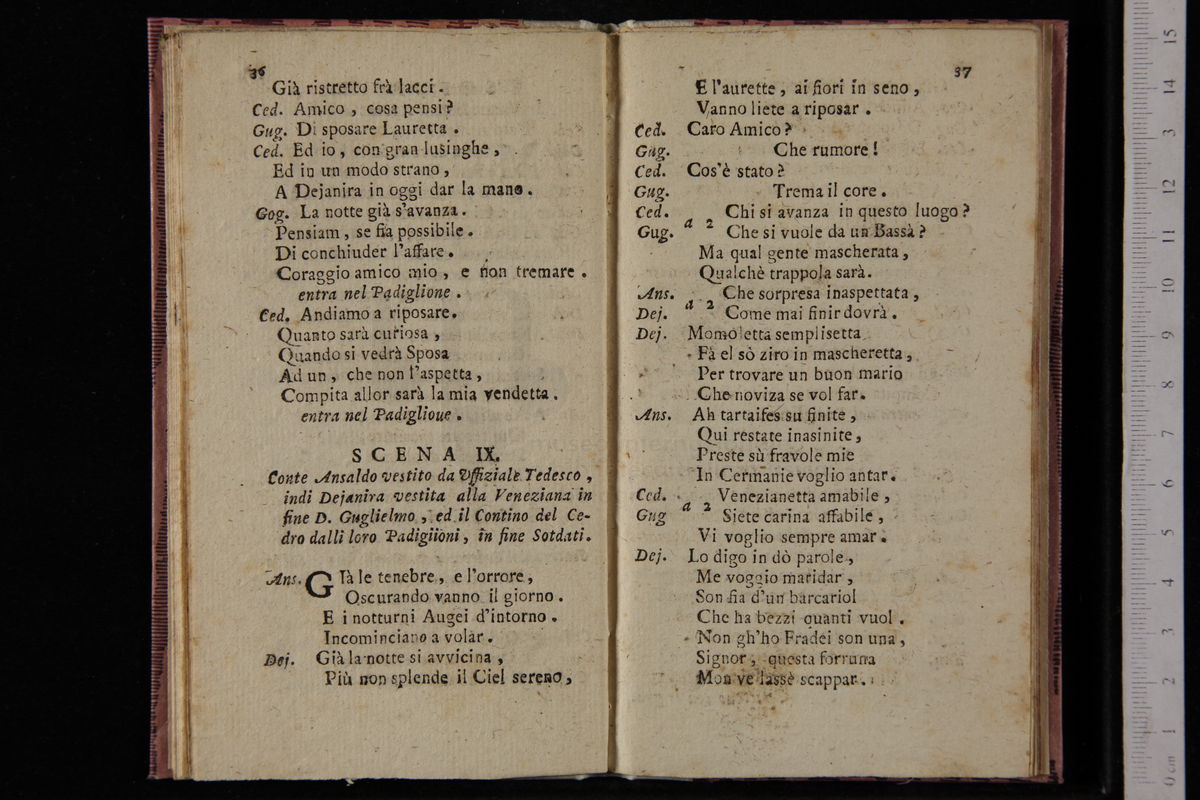 36
Già ristretto frà lacci.
Ced. Amico, cosa pensi?
Gug. Di sposare Lauretta.
Ced. Ed io, con gran lusinghe,
Ed in un modo strano,
A Dejanira in oggi dar la mano.
Gog. La notte già s'avanza.
Pensiam, se fia possibile.
Di conchiuder l'affare.
Coraggio amico mio, e non tremare.
entra nel Padiglione.
Ced. Andiamo a riposare.
Quanto sarà curiosa,
Quando si vedrà Sposa
Ad un, che non l'aspetta,
Compita allor sarà la mia vendetta.
entra nel Padiglioue.
SCENA IX.
Conte Ansaldo vestito da Uffiziale Tedesco,
indi Dejanira vestita alla Veneziana in
fine D. Guglielmo, ed il Contino del Ce-
dro dalli loro Padigiioni, in fine Sotdati.
Ans. GIà le tenebre, e l'orrore,
Oscurando vanno il giorno.
E i notturni Augei d'intorno.
Incominciano a volar.
Dej. Già la notte si avvicina,
Più non splende il Ciel sereno,
37
E l'aurette, ai fiori in seno,
Vanno liete a riposar.
Ced. Caro Amico?
Gug. Che rumore!
Ced. Cos'è stato?
Gug. Trema il core.
Ced. Chi si avanza in questo luogo?
a 2
Gug. Che si vuole da un Bassà?
Ma qual gente mascherata,
Qualchè trappola sarà.
Ans. Che sorpresa inaspettata,
a 2
Dej. Come mai finir dovrà.
Dej. Momoletta semplisetta
Fà el sò ziro in mascheretta,
Per trovare un buon mario
Che noviza se vol far.
Ans. Ah tartaifes su finite,
Qui restate inasinite,
Preste sù fravole mie
In Cermanie voglio antar.
Ced. Venezianetta amabile,
a 2
Gug Siete carina affabile,
Vi voglio sempre amar.
Dej. Lo digo in dò parole,
Me voggio maridar,
Son fia d'un barcariol
Che ha bezzi quanti vuol.
Non gh'ho Fradei son una,
Signor, questa forruna
Mon ve lassè scappar.